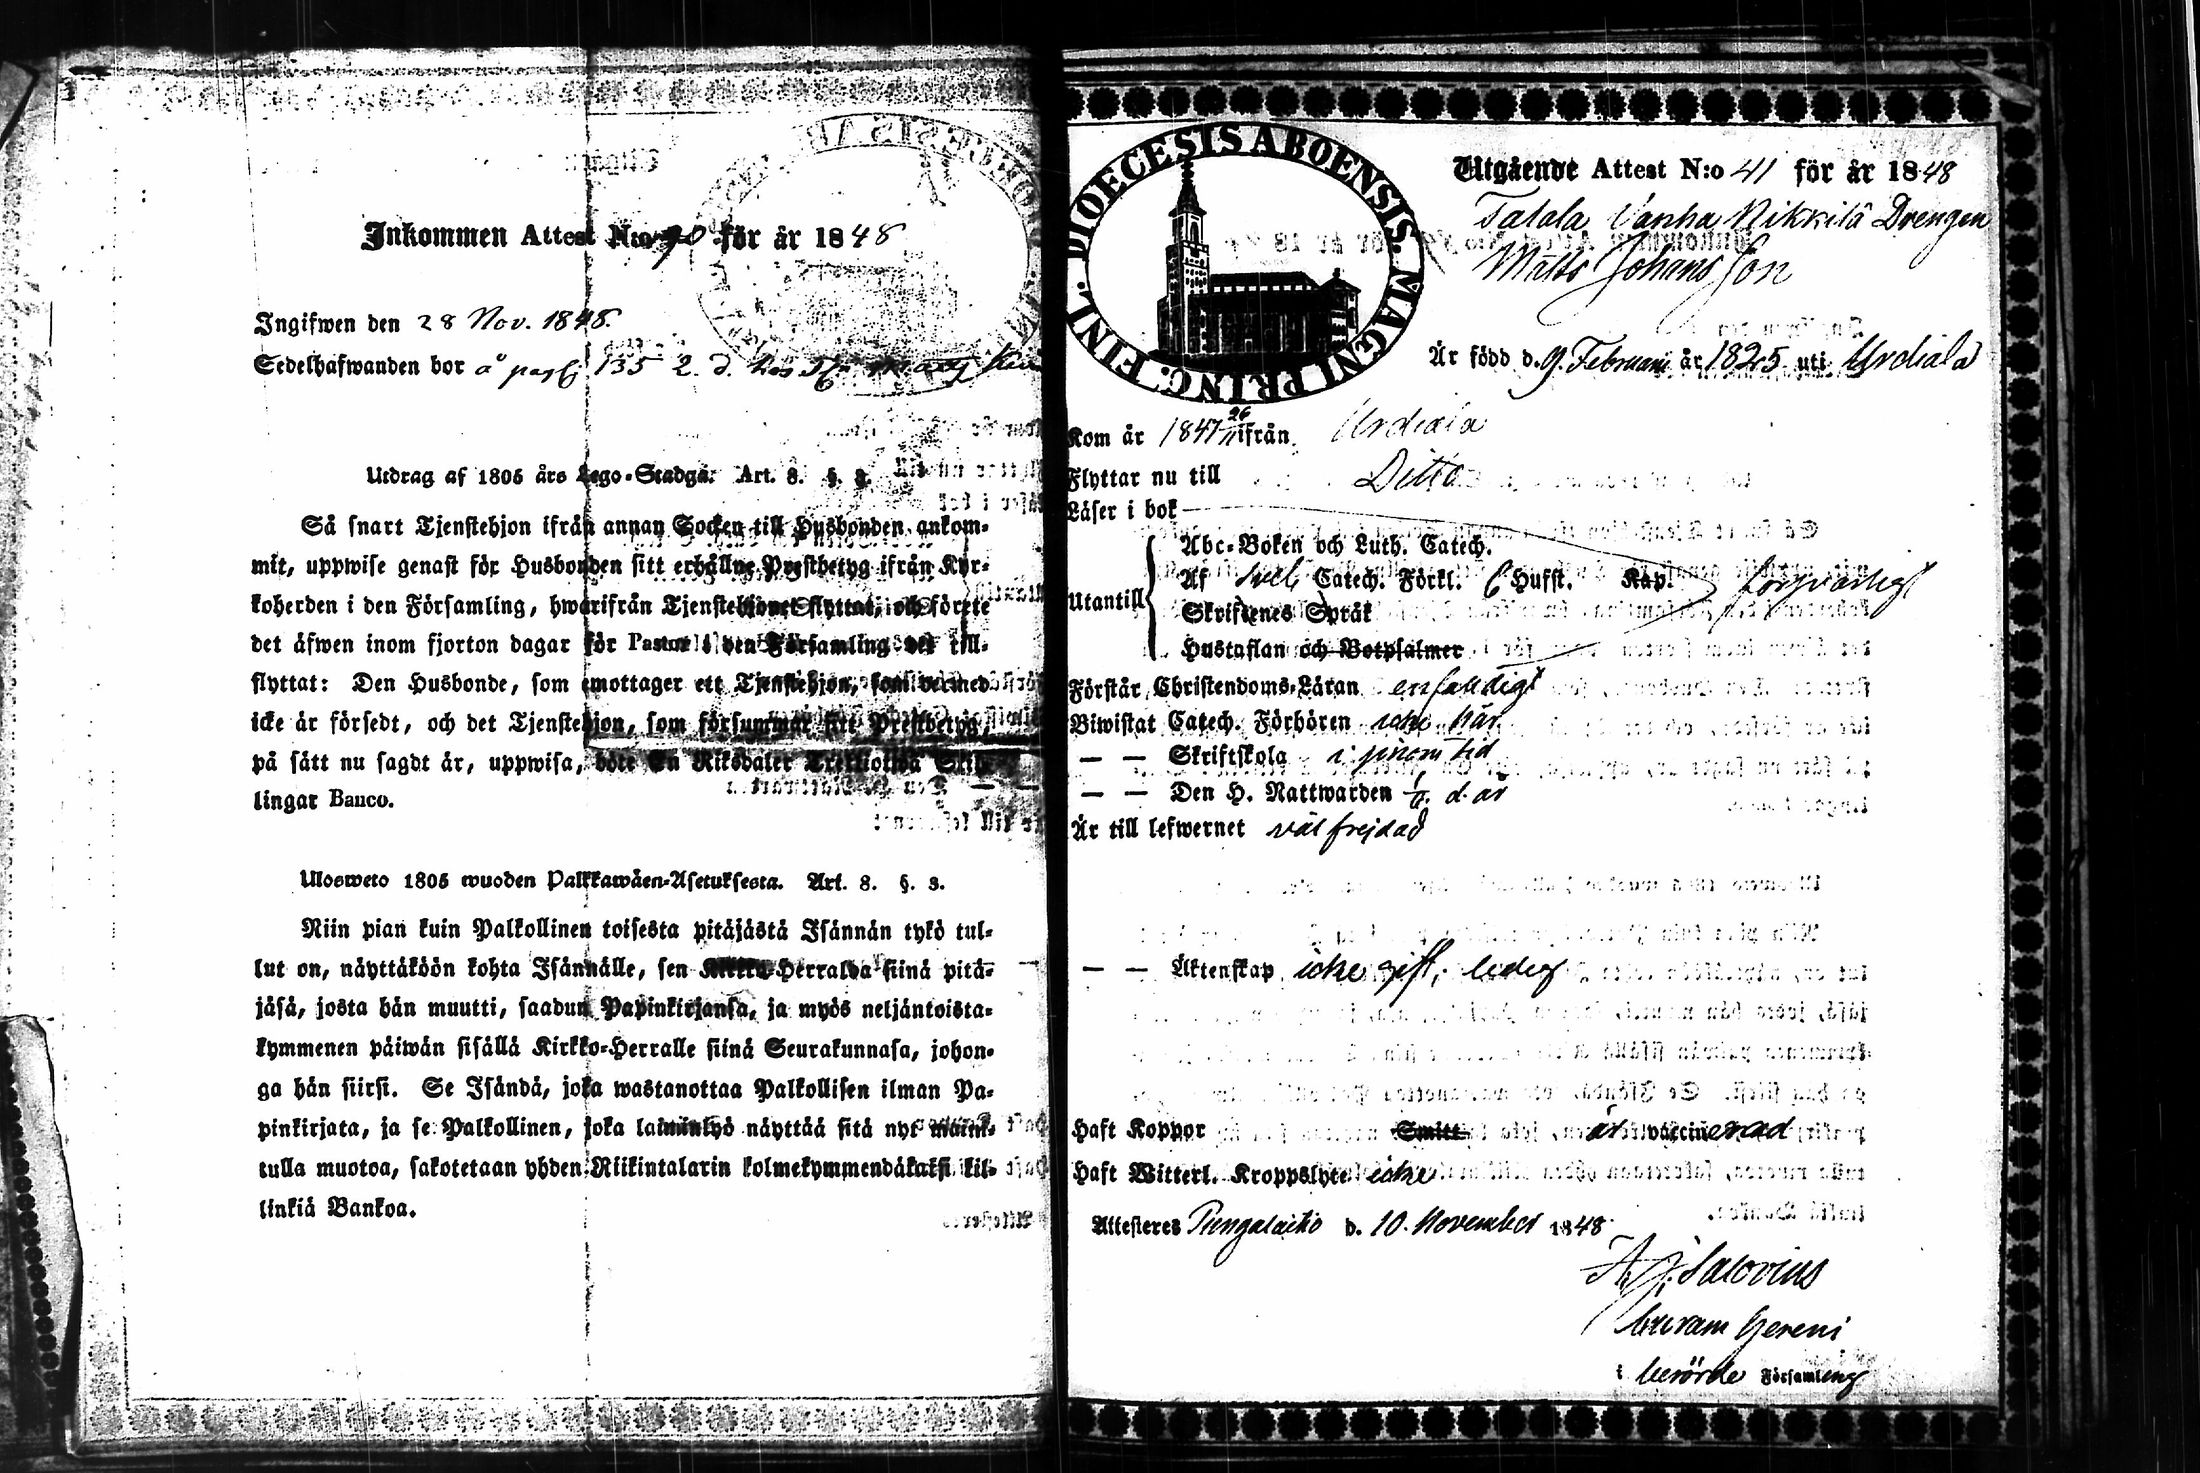 Inkommen Attest N:o 90 för år 1848
Ingifwen den 28 Nov. 1848.
Sedelhafwanden bor å pag 135 2. d. hos
Utdrag af 1805 års Lego-Stadga. Art. 8. §. 3.
Så snart Tjenstehjon ifrån annan Socken till Husbonden ankom-
mit, uppwise genast för Husbonden sitt erhållne Prestbetyg ifrån Kyr-
koherden i den Församling, hwarifrån Tjenstehjonet flyttat, och förete
det äfwen inom fjorton dagar för Pastor i den Församling det till-
flyttat: Den Husbonde, som emottager ett Tjenstehjon, som dermed
icke är försedt, och det Tjenstehjon, som försummar sitt Prestbetyg,
på sätt nu sagdt är, uppwisa, böte En Riksdaler Trettiotwå Skil-
lingar Banco.
Ulosweto 1805 wuoden Palkkawäen-Asetuksesta. Art. 8. §. 3.
Niin pian kuin Palkollinen toisesta pitäjästä Isännän tykö tul-
lut on, näyttäköön kohta Isännälle, sen Kirkko-Herralda siinä pitä-
jäsä, josta hän muutti, saadun Papinkirjansa, ja myös neljäntoista-
kymmenen päiwän sisällä Kirkko-Herralle siinä Seurakunnasa, johon-
ga hän siirsi. Se Isändä, joka wastanottaa Palkollisen ilman Pa-
pinkirjata, ja se Palkollinen, joka laiminlyö näyttää sitä nyt mainit-
tulla muotoa, sakotetaan yhden Riikintalarin kolmekymmendäkaksi kil-
linkiä Bankoa.
DIOECESIS ABOENSIS. MAGNI PRINC. FINL.
Utgående Attest N:o 41 för år 1848
Talala Vanha Nikkilä Drengen
Matts Johansson
Är född d. 9. Februari år 1825 uti Urdiala
Kom år 1847 26/11 ifrån Urdiala
Flyttar nu till Ditto
Läser i bok
Utantill
Abc-Boken och Luth. Catech.
Af Sveb. Catech. Förkl. 6 Hufst. Kap. försvarligt
Skriftenes Språk
Hustaflan och Botpsalmer
Förstår Christendoms-Läran enfaldigt
Biwistat Catech. Förhören icke här
— — Skriftskola i sinom tid
— — Den H. Nattwarden d. år
Är till lefwernet väl frejdad
— — Äktenskap icke gift, ledig
Haft Koppor Smitt är vaccinerad
Haft Witterl. Kroppslyte icke
Attesteres Pungalaitio d. 10. November 1848.
A. J. Salovius
i berörde Församling